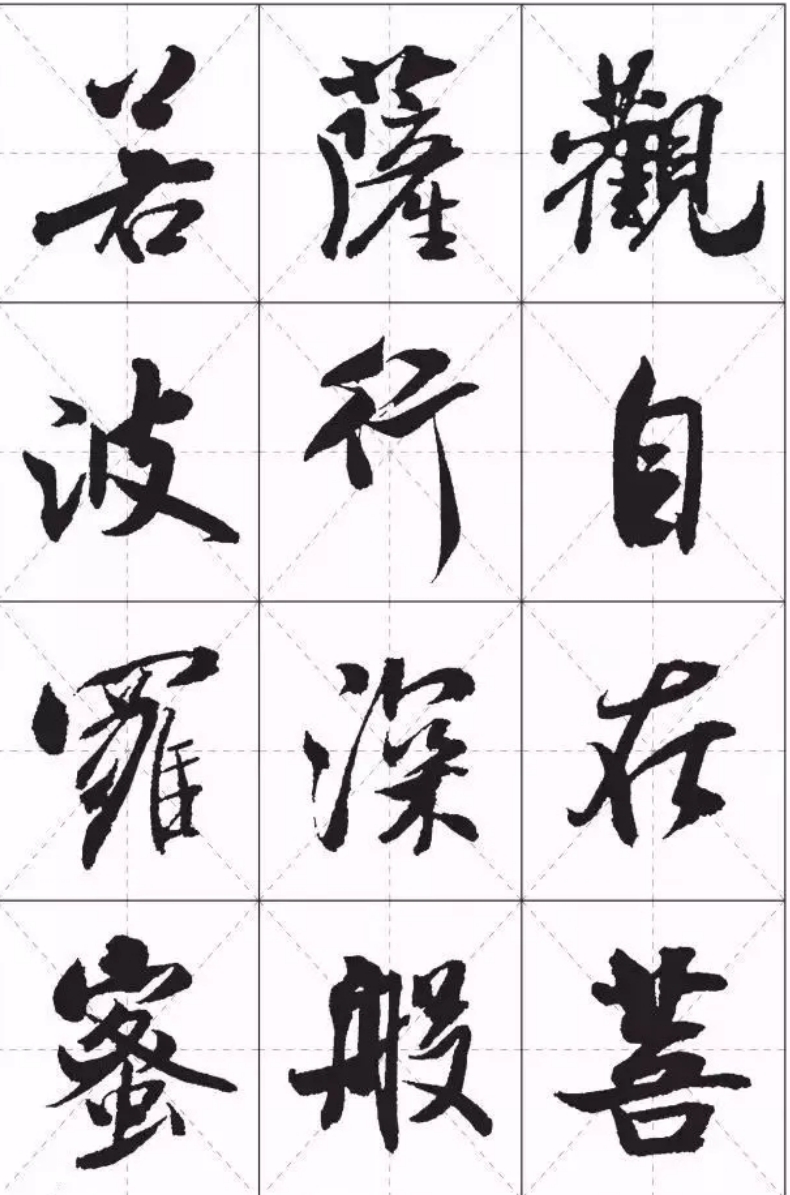 觀自在菩
薩行深般
若波羅蜜